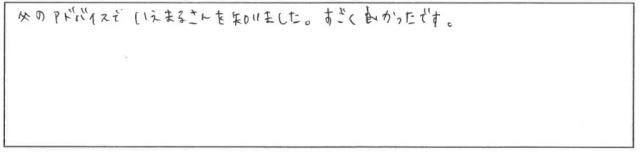 父のアドバイスで いえまるさんを知りました。すごく良かったです。